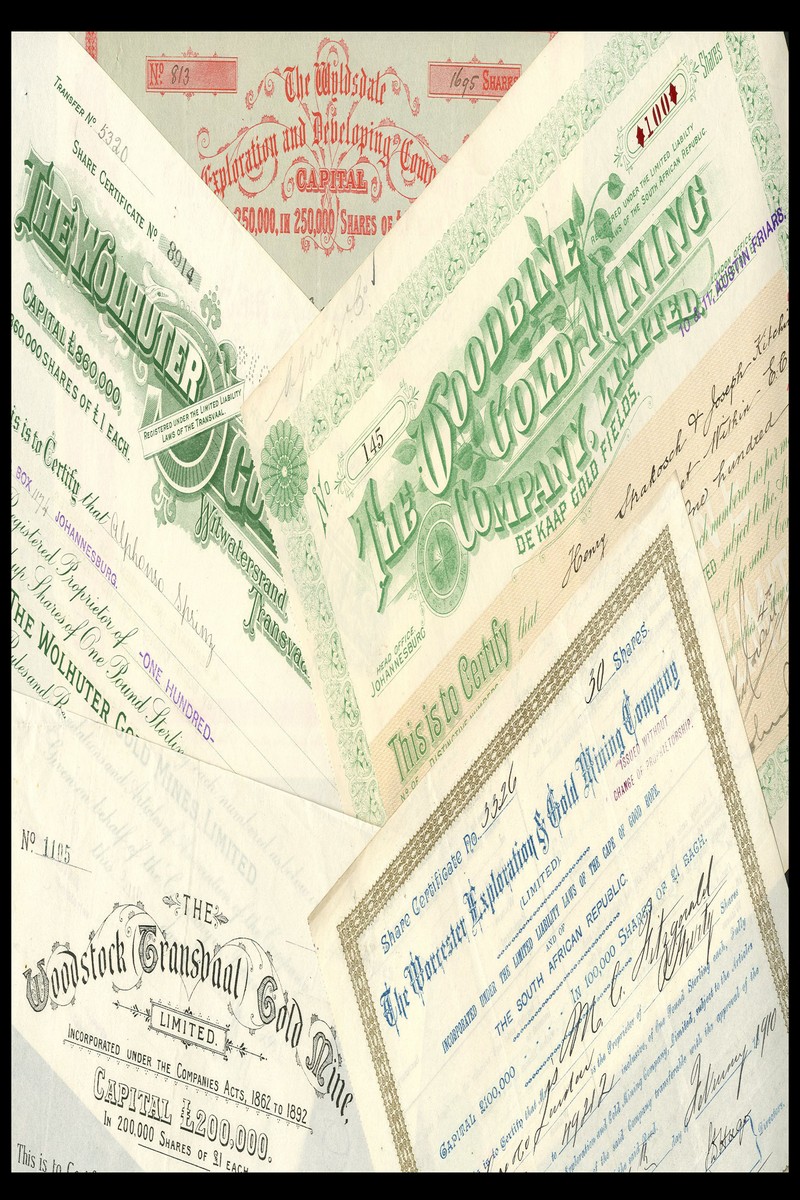 Nº 813
1695 SHARES
The Wyldsdale
Exploration and Developing
CAPITAL
250,000, IN 250,000 SHARES OF
TRANSFER Nº 5320
SHARE CERTIFICATE Nº 8914
THE WOLHUTER
CAPITAL £860,000,
860,000 SHARES OF £1 EACH.
REGISTERED UNDER THE LIMITED LIABILITY
LAWS OF THE TRANSVAAL
Witwatersrand
to Certify that Alphonse
BOX 1174 JOHANNESBURG.
Registered Proprietor of -ONE HUNDRED-
Shares of One Pound
THE WOLHUTER
GOLD MINES LIMITED
Shares
100
REGISTERED UNDER THE LIMITED LIABILITY
LAWS OF THE SOUTH AFRICAN REPUBLIC
Nº 145
THE WOODBINE
GOLD MINING
COMPANY, LIMITED.
DE KAAP GOLD FIELDS.
LONDON OFFICE
10 & 11, AUSTIN FRIARS.
HEAD OFFICE
JOHANNESBURG
This is to Certify that Henry Strakosch & Joseph
One hundred
Share Certificate No. 3326
30 Shares.
The Worcester Exploration & Gold Mining Company
(LIMITED),
ISSUED WITHOUT
CHANGE OF PROPRIETORSHIP.
INCORPORATED UNDER THE LIMITED LIABILITY LAWS OF THE CAPE OF GOOD HOPE,
AND OF
THE SOUTH AFRICAN REPUBLIC.
CAPITAL £100,000 IN 100,000 SHARES OF £1 EACH.
to Certify that M. C. Fitzgerald
London is the Proprietor of Shares
inclusive, of One Pound Sterling each, fully
Exploration and Gold Mining Company, Limited, subject to the Articles
of the said Company transferable with the approval of the
day February 1910
Directors.
Nº 1105
THE
Woodstock Transvaal Gold Mine,
LIMITED.
INCORPORATED UNDER THE COMPANIES ACTS, 1862 TO 1892
CAPITAL £200,000.
IN 200,000 SHARES OF £1 EACH
This is to